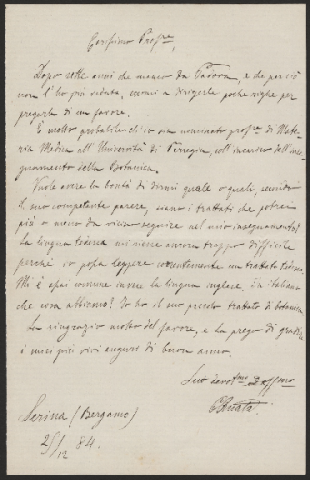 Carissimo Prof.re,
Dopo sette anni che manco da Padova, e da perciò
non l'ho più veduta, vengo a dirigerle poche righe per
pregarla di un favore.
È molto probabile ch'io sia nominato prof.re di Mate-
ria Medica all'Università di Perugia, coll'incarico dell'inse-
gnamento della Botanica.
Vuole avere la bontà di dirmi quale o quali, secondo
il suo competente parere, siano i trattati che potrei
più o meno da vicino seguire nel mio insegnamento?
La lingua tedesca mi riesce ancora troppo difficile
perchè io possa leggere correntemente un trattato tedesco.
Mi è assai comune invece la lingua inglese. In italiano
che cosa abbiamo? Io ho il suo piccolo trattato di botanica.
La ringrazio molto del favore, e la prego di gradire
i miei più vivi auguri di buon anno.
Suo devot.mo
Serina (Bergamo)
25/12 84.